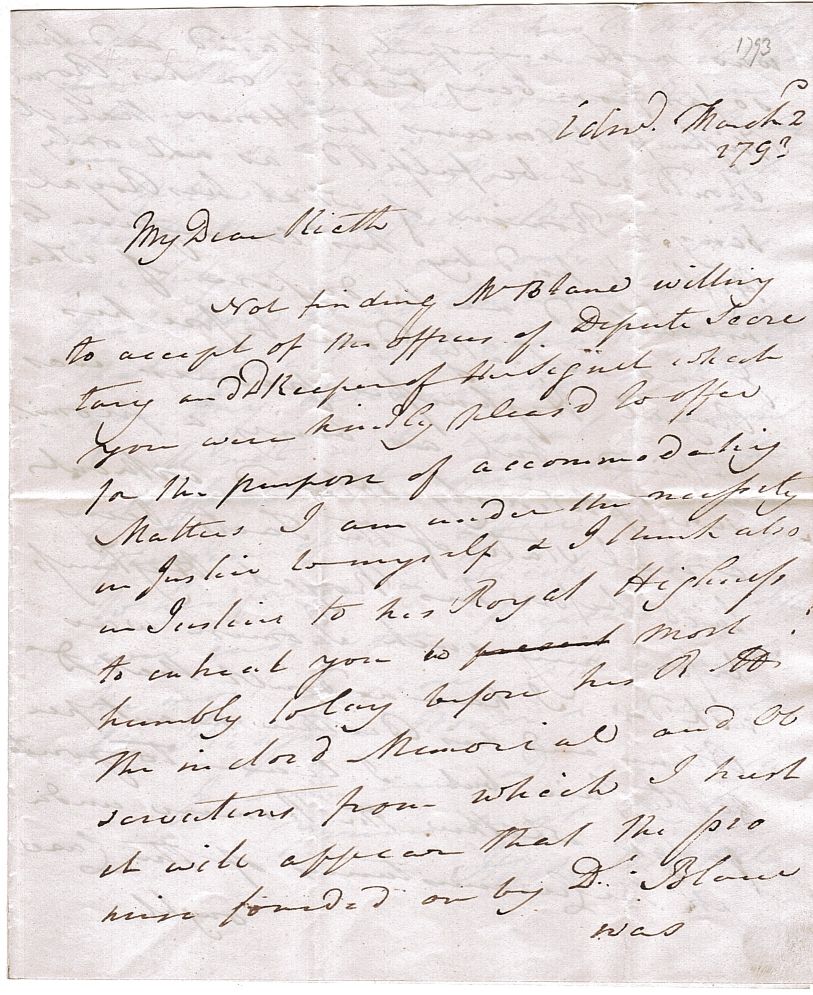 1793
Edinr. March 2d
1793
My Dear Kieth
Not finding Mr Blane willing
to accept of the offices of Depute Secre
tary and D Keeper of the Signet which
you were kindly pleasd to offer
for the purpose of accommodating
Matters I am under the necessity
in Justice to myself & I think also
in Justice to his Royal Highness
to entreat you to present most
humbly to lay before his R Hs
the inclosd Memorial and Ob
servations from which I trust
it will appear that the pro
mise founded on by Dr. Blane
was